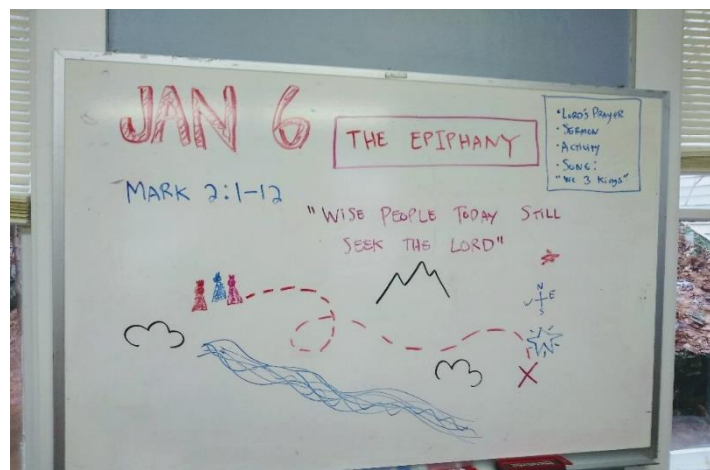 JAN 6
THE EPIPHANY
• LORD'S PRAYER
• SERMON
• ACTIVITY
• SONG:
"We 3 Kings"
MARK 2:1-12
"WISE PEOPLE TODAY STILL
SEEK THE LORD"
N
E
S
X